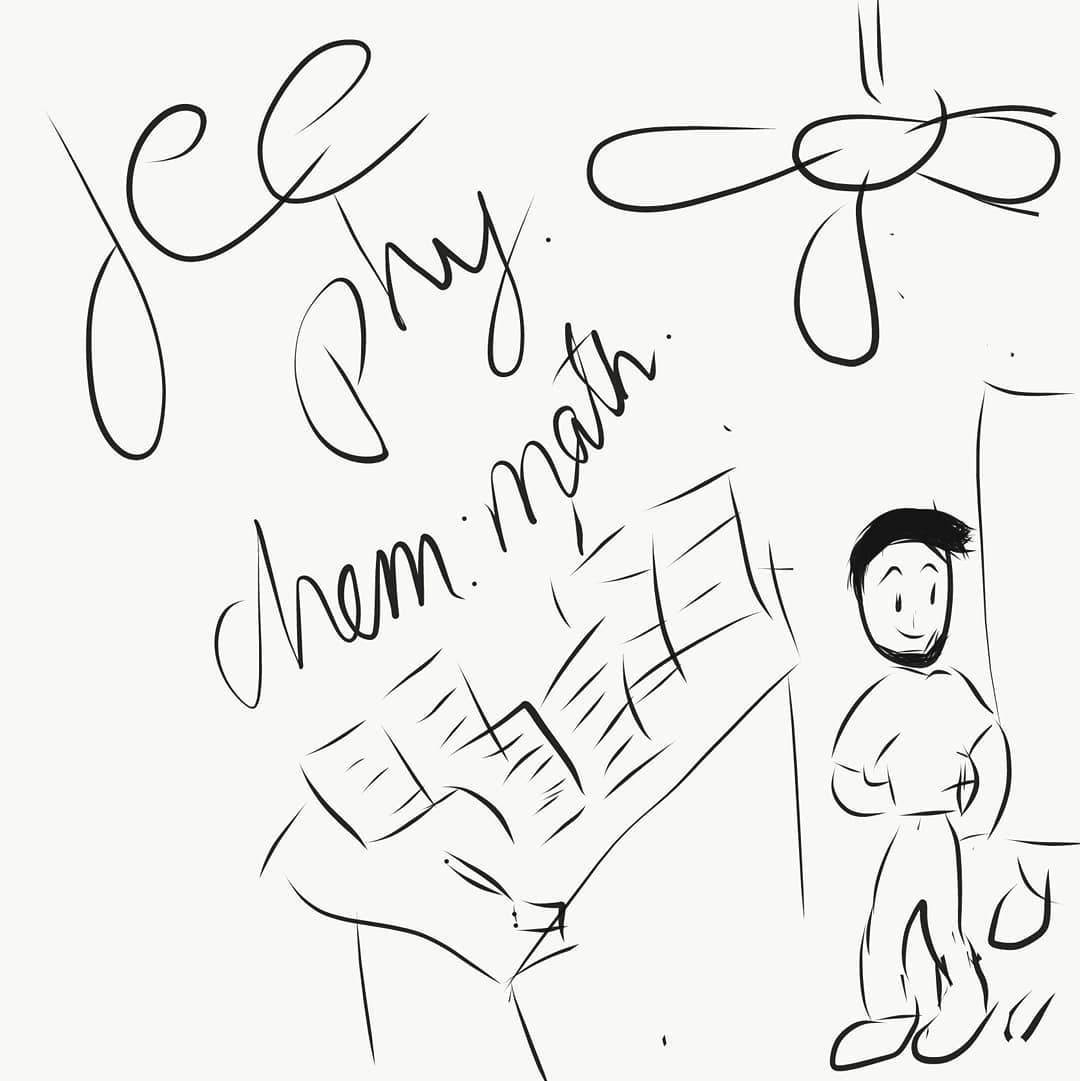 Jee
phy.
chem. math.